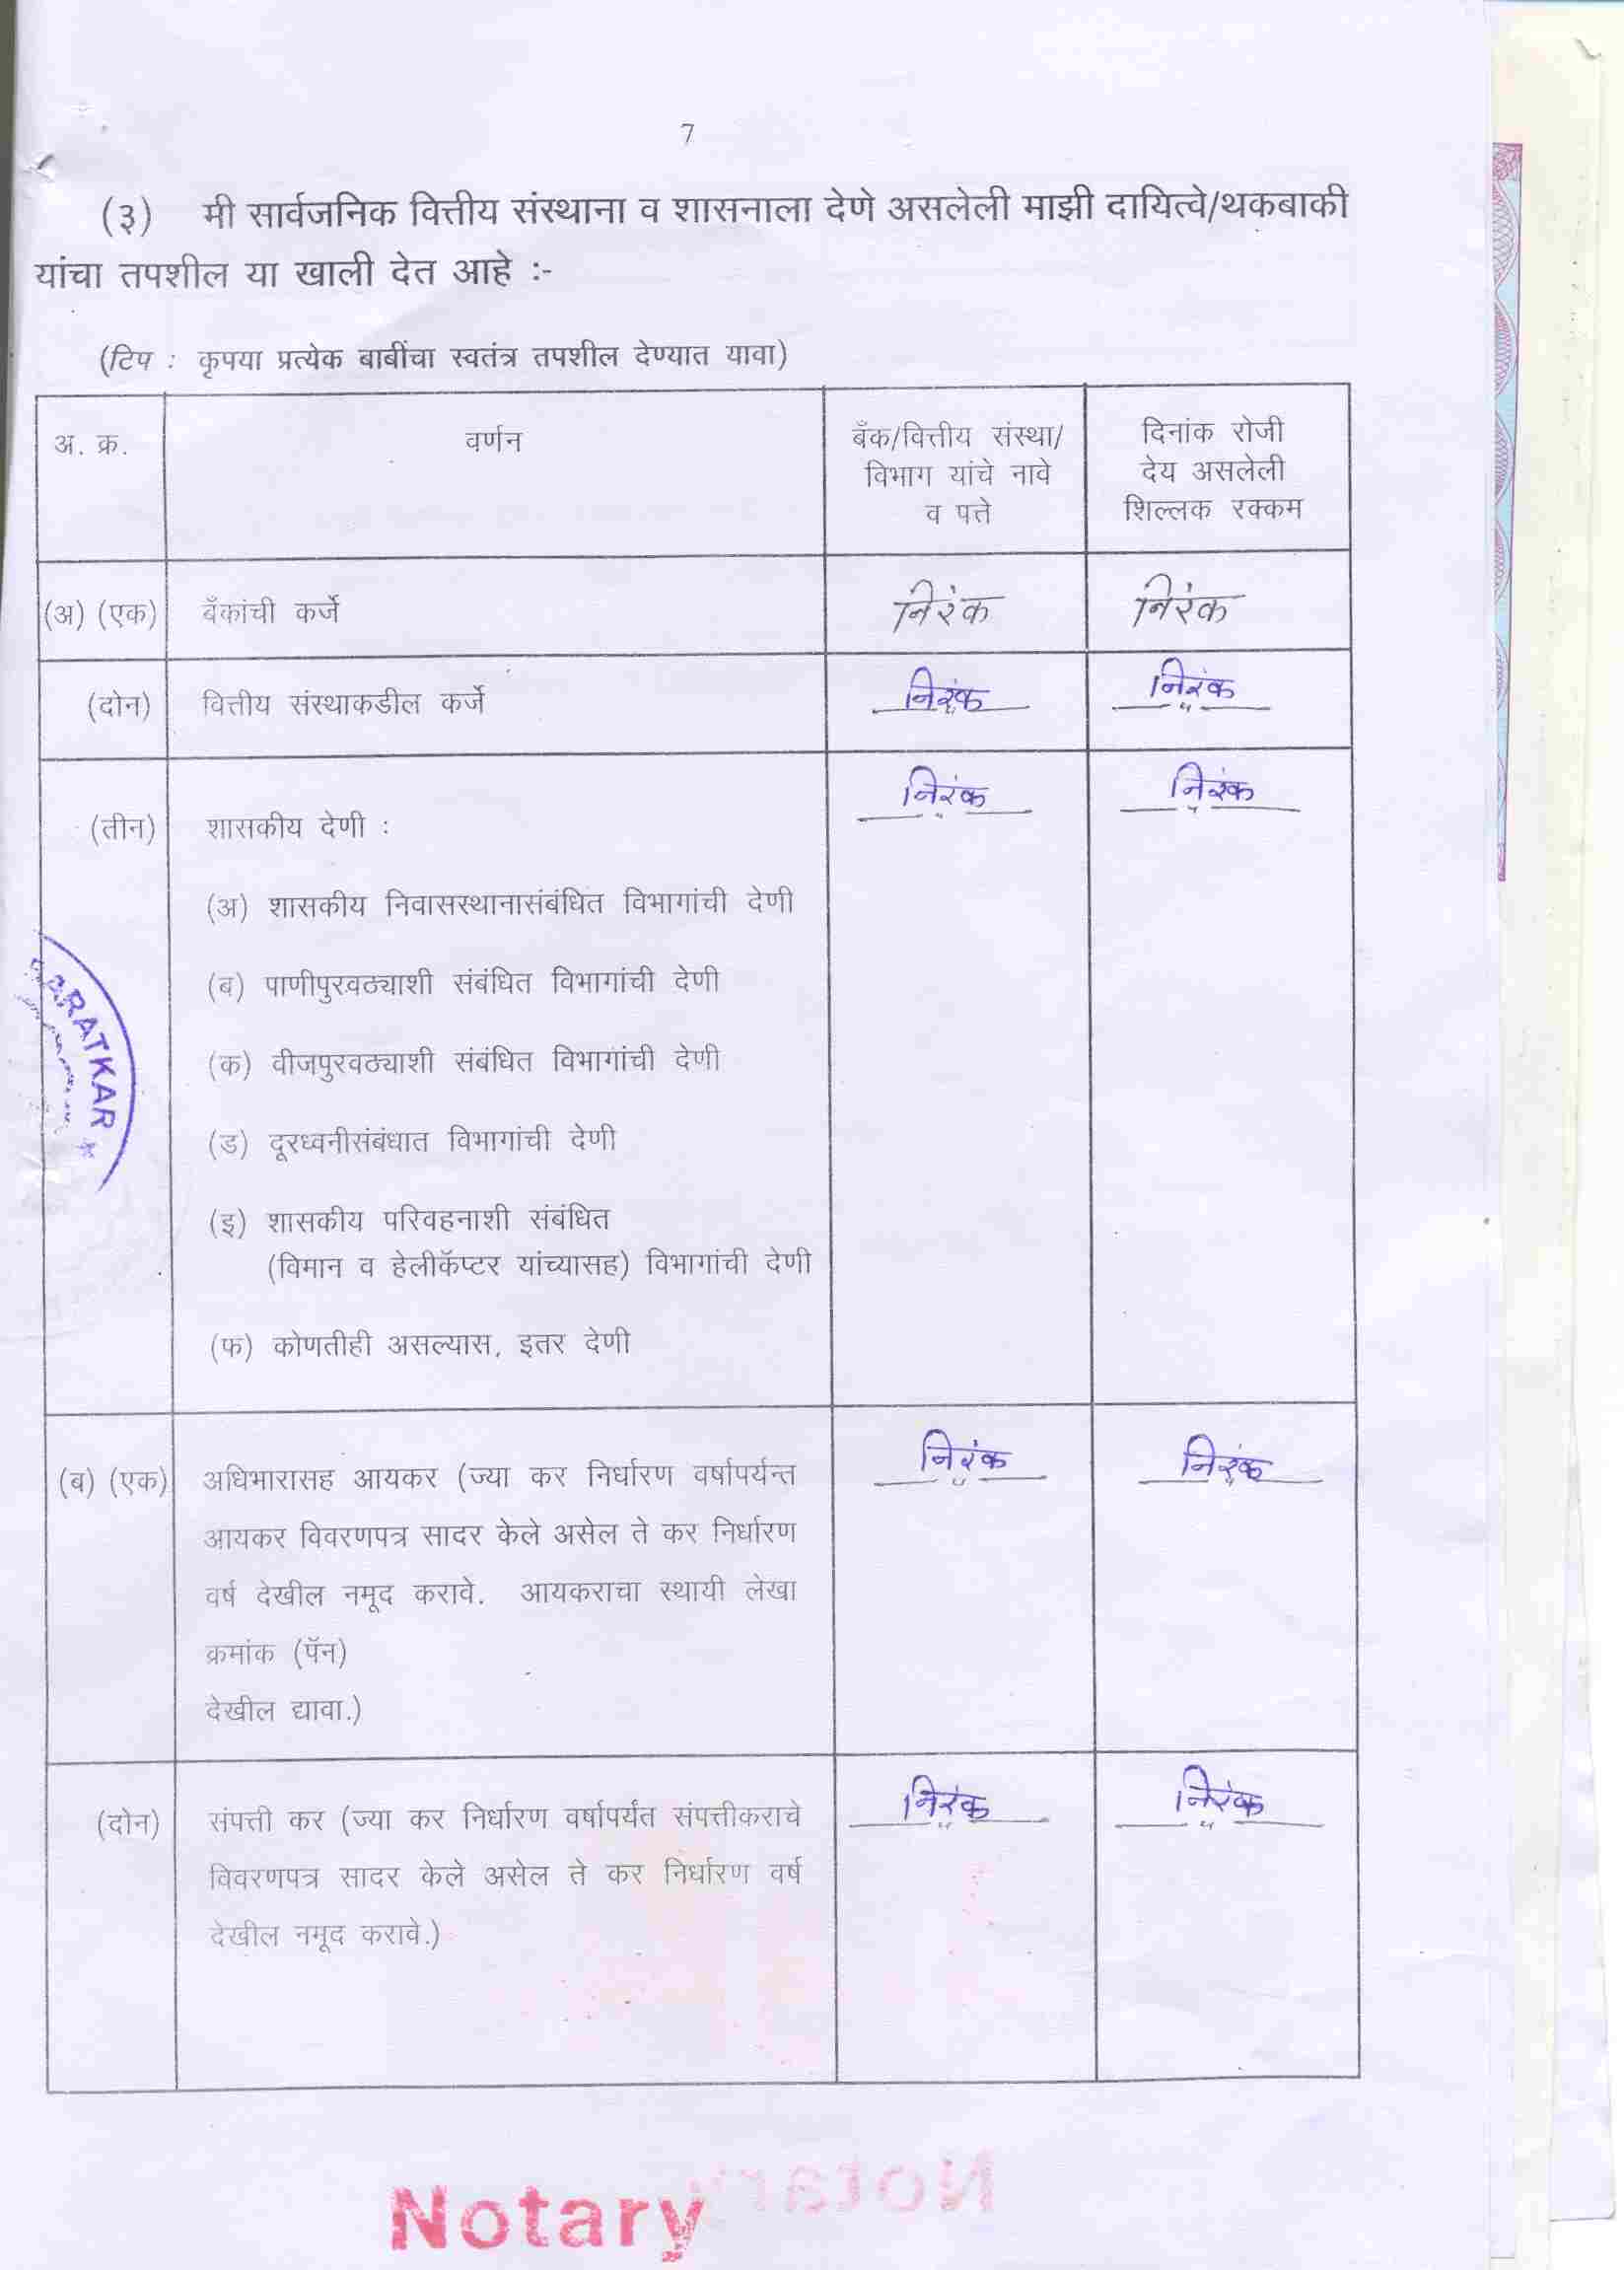 7
(३) मी सार्वजनिक वित्तीय संस्थाना व शासनाला देणे असलेली माझी दायित्वे/थकबाकी
यांचा तपशील या खाली देत आहे :-
(टिप : कृपया प्रत्येक बाबींचा स्वतंत्र तपशील देण्यात यावा)
अ. क्र.
वर्णन
बँक/वित्तीय संस्था/
विभाग यांचे नावे
व पत्ते
दिनांक रोजी
देय असलेली
शिल्लक रक्कम
(अ) (एक) बँकांची कर्जे निरंक निरंक
(दोन) वित्तीय संस्थाकडील कर्जे निरंक निरंक
निरंक निरंक
(तीन) शासकीय देणी :
(अ) शासकीय निवासस्थानासंबंधित विभागांची देणी
(ब) पाणीपुरवठ्याशी संबंधित विभागांची देणी
(क) वीजपुरवठ्याशी संबंधित विभागांची देणी
(ड) दूरध्वनीसंबंधात विभागांची देणी
(इ) शासकीय परिवहनाशी संबंधित
(विमान व हेलीकॅप्टर यांच्यासह) विभागांची देणी
(फ) कोणतीही असल्यास, इतर देणी
RATKAR *
(ब) (एक) अधिभारासह आयकर (ज्या कर निर्धारण वर्षापर्यन्त निरंक निरंक
आयकर विवरणपत्र सादर केले असेल ते कर निर्धारण
वर्ष देखील नमूद करावे. आयकराचा स्थायी लेखा
क्रमांक (पॅन)
देखील द्यावा.)
(दोन) संपत्ती कर (ज्या कर निर्धारण वर्षापर्यंत संपत्तीकराचे निरंक निरंक
विवरणपत्र सादर केले असेल ते कर निर्धारण वर्ष
देखील नमूद करावे.)
Notary
Notary